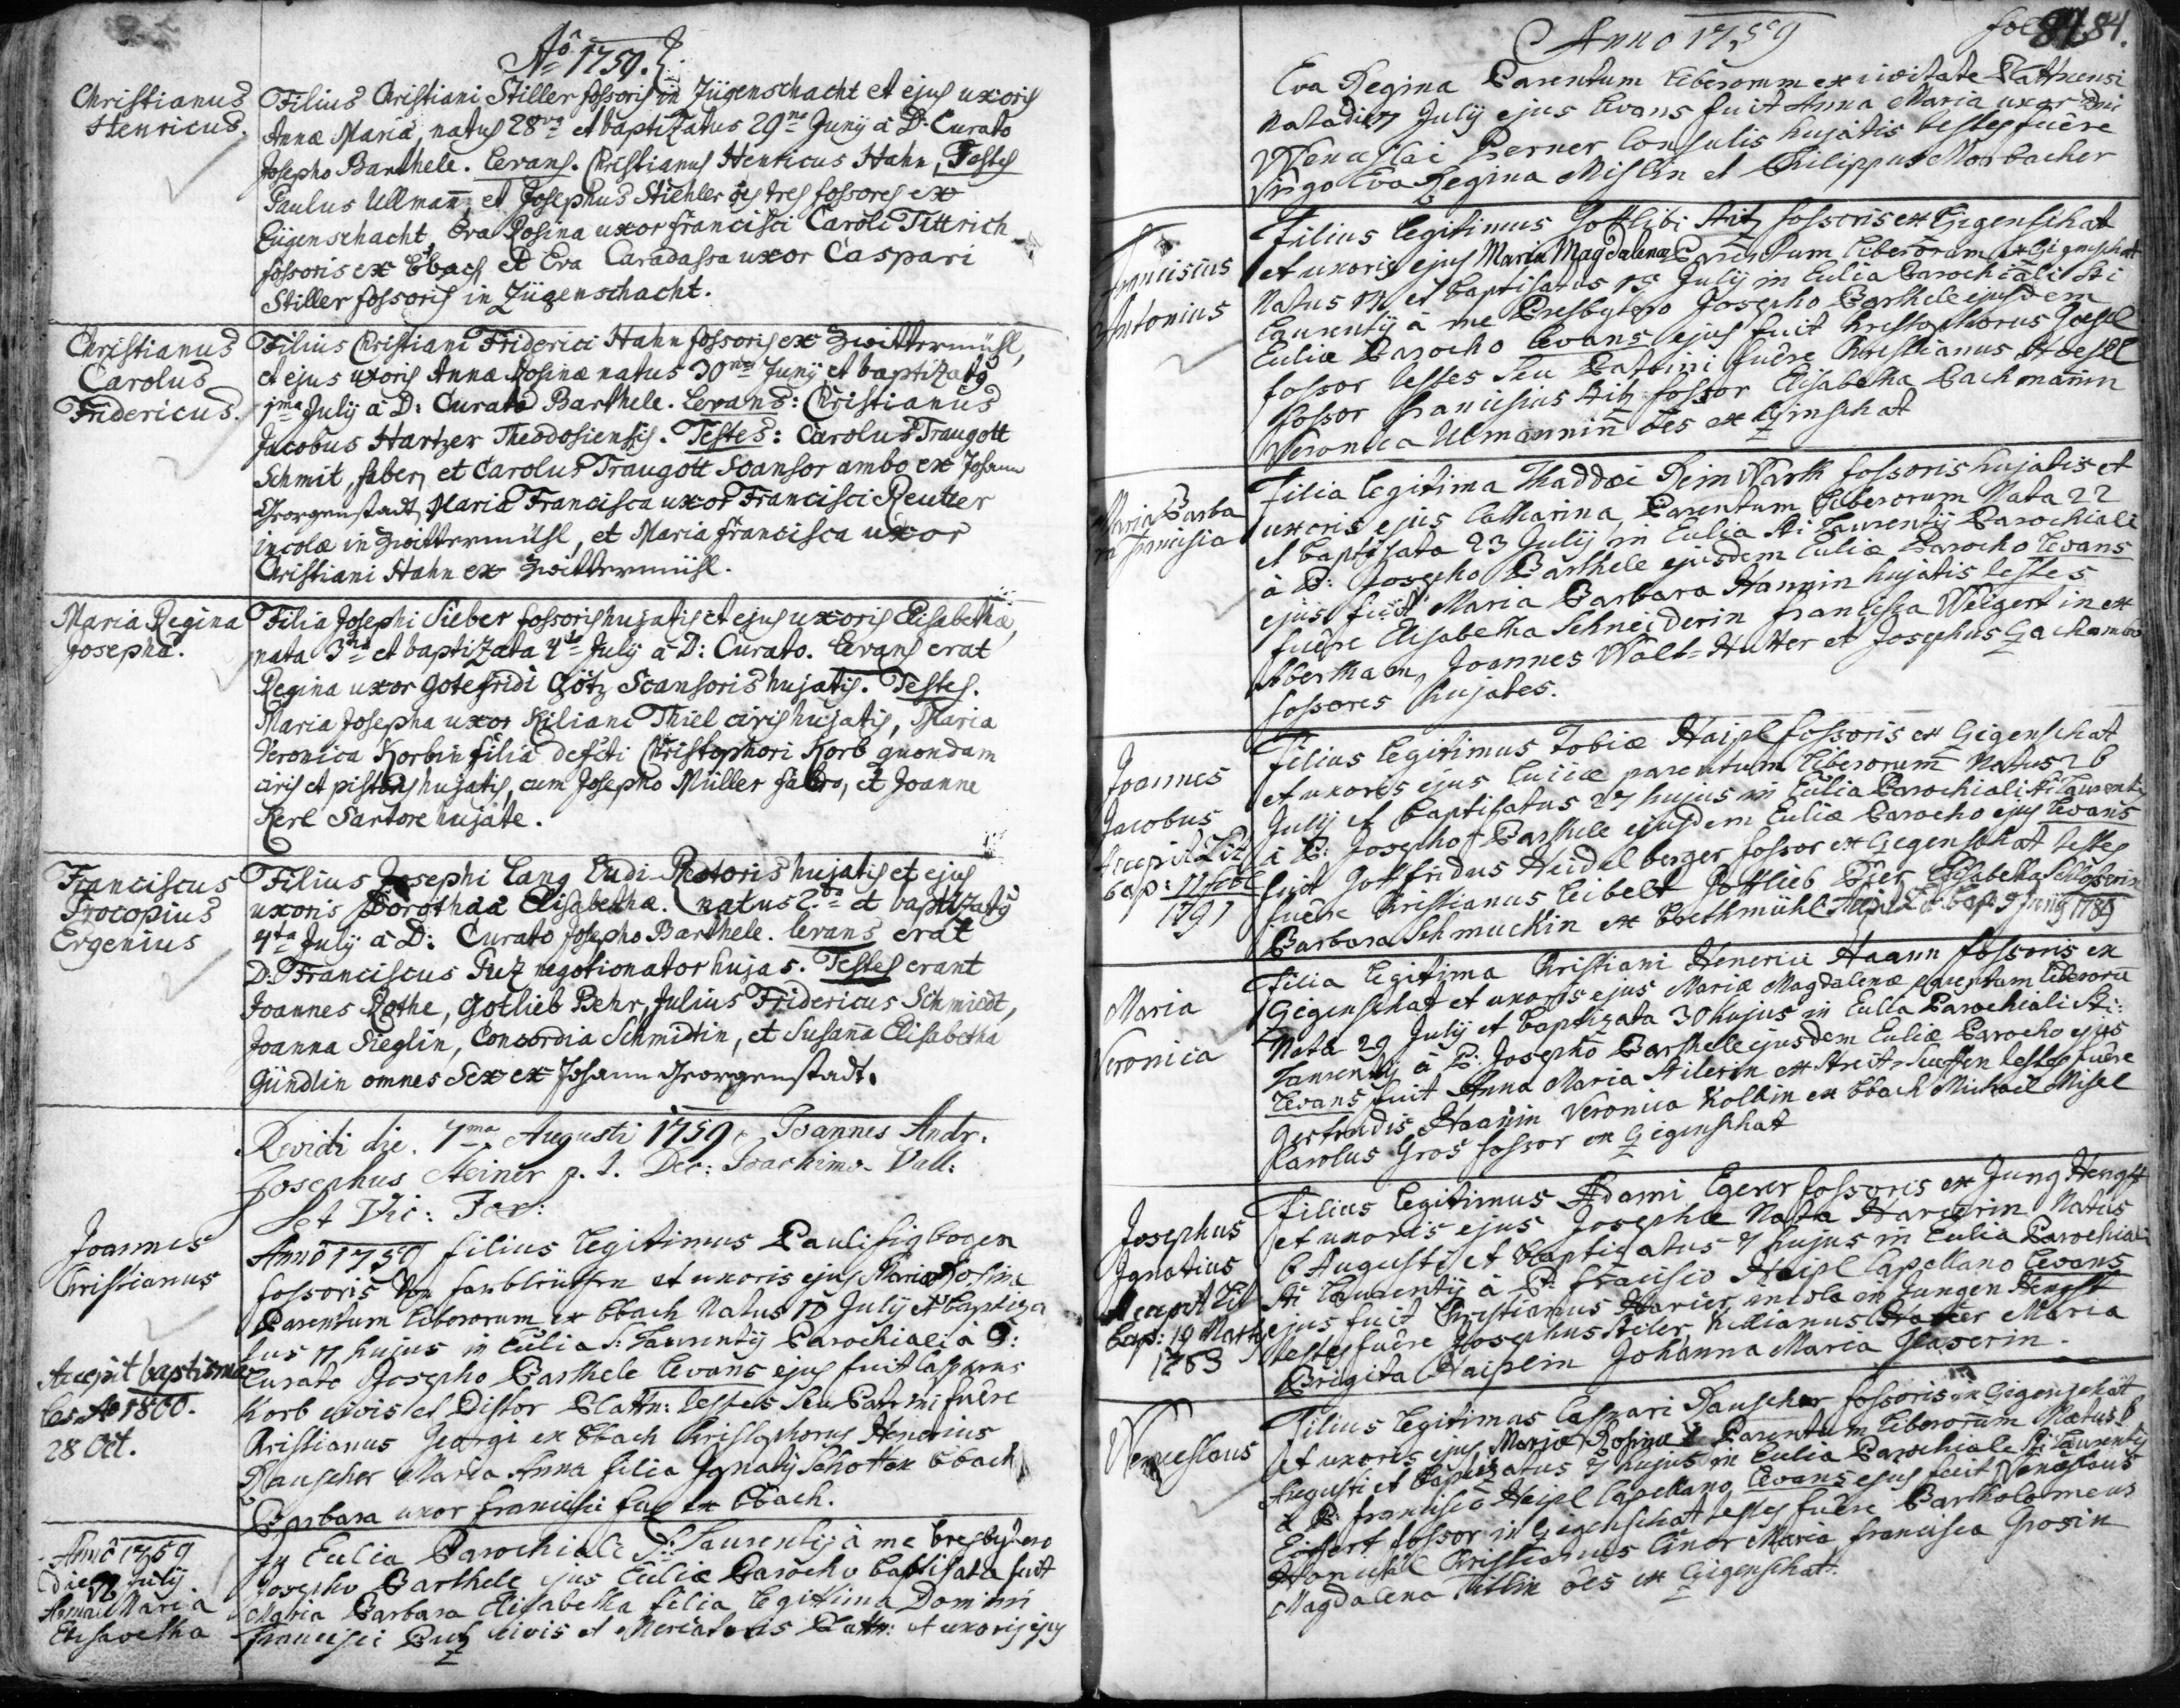 Aô 1759.
Christianus
Henricus.
Filius Christiani Stiller fossoris in Zügenschacht et ejus uxoris
Annæ Maria, natus 28va et baptizatus 29na Junij à D. Curato
Josepho Barthele. Levans. Christianus Henricus Hahn, Testes
Paulus Ullman̄, et Josephus Stiehler ões tres fossores ex
Zügenschacht, Eva Rosina uxor Francisci Caroli Tittrich
fossoris ex Ebach, et Eva Caradassa uxor Caspari
Stiller fossoris in Zügenschacht.
Christianus
Carolus
Fridericus.
Filius Christiani Friderici Hahn fossoris ex Zwittermühl,
et ejus uxoris Annæ Rosinæ natus 30ma Junij et baptizatus
1ma July à D: Curato Barthele. Levans: Christianus
Jacobus Hartzer Theodosiensis. Testes: Carolus Traugott
Schmit, faber, et Carolus Traugott Scansor ambo ex Johann
Georgenstadt, Maria Francisca uxor Francisci Reuter
incolæ in Zwittermühl, et Maria Francisca uxor
Christiani Hahn ex Zwittermühl.
Maria Regina
Josepha.
Filia Josephi Sieber fossoris hujatis et ejus uxoris Elisabethæ,
nata 3tia et baptizata 4ta July à D: Curato. Levans erat
Regina uxor Gotefridi Götz Scansoris hujatis. Testes.
Maria Josepha uxor Kiliani Thiel civis hujatis, Maria
Veronica Korbin filia defcti Christophori Korb quondam
civis et pistoris hujatis, cum Josepho Müller fabro, et Joanne
Kerl Sartore hujate.
Franciscus
Procopius
Ergenius
Filius Josephi Lang Ludi-Rectoris hujatis et ejus
uxoris Dorotheæ Elisabethæ. natus 2da et baptizatus
4ta July à D: Curato Josepho Barthele. Levans erat
D: Franciscus Puz negotionator hujas. Testes erant
Joannes Rothe, Gotlieb Behr, Julius Fridericus Schmiedt,
Joanna Sieglin, Concordia Schmidtin, et Susan̄a Elisabetha
Gündlin omnes Sex ex Johann Georgenstadt.
Revidi die. 7ma Augusti 1759. Joannes Andr.
Josephus Steiner p. t. Dec: Joachimo-Vall:
et Vic: For:
Joannes
Christianus
Accepit baptisma
les Aô 1800.
28 Oct.
Annô 1759 filius legitimus Pauli Sigbogen
fossoris et uxoris ejus Maria Rosina
Parentum liberorum ex Ebach Natus 10 July et baptiza
tus 11 hujus in Ecclia S: Laurentij Parochiali à D:
Curato Josepho Barthele Levans ejus fuit Casparus
Korb civis et Pistor Plattn: testes seu Patrini fuêre
Christianus Georgi ex Ebach Christophorus Henricus
Rauscher Maria Anna filia Ignatij Schott ex Ebach
Barbara uxor Francisci ex Ebach.
Annô 1759
Die July
Anna Maria
Elisabetha
In Ecclia Parochiali S: Laurentij à me Presbytero
Josepho Barthele ejus Eccliæ Parocho baptisata fuit
Maria Barbara Elisabetha filia legitima Domini
Francisci Putz civis et Mercatoris Plattn: et uxoris ejus
Anno 1759
fol 84.
Eva Regina Parentum liberorum ex civitate Plattnensi
Nata die July ejus levans fuit Anna Maria uxor Dni
Wenceslai Perner Consulis hujatis testes fuêre
Virgo Eva Regina Mislin et Philippus Morbacher
Franciscus
Antonius
Filius legitimus Gottlibi Hitz fossoris ex Gigenschat
et uxoris ejus Maria Magdalena Parentum liberorum ex Gigenschat
Natus et baptisatus July in Ecclia Parochiali Sti
Laurentij à me Presbytero Josepho Barthele ejusdem
Eccliæ Parocho levans ejus fuit Christophorus Goessl
fossor testes seu Patrini fuêre Christianus Hoessl
fossor Franciscus Hitz fossor Elisabetha Bachmannin
Veronica Ulmannin̄ ões ex Ginschat
Maria Barba
ra Francisca
Filia legitima Thaddæi Reinwarth fossoris hujatis et
uxoris ejus Catharina Parentum liberorum Nata 22
et baptisata 23 July in Ecclia Sti Laurentij Parochiali
à P: Josepho Barthele ejusdem Eccliæ Parocho levans
ejus fuit Maria Barbara Hannin hujatis testes
fuêre Elisabetha Schneiderin Francisca Weigertin ex
Abertham, Joannes Walt-Hütter et Josephus Gach ambo
fossores hujates.
Joannes
Jacobus
Accepit Lit
bap: 11 febr
1791
Filius legitimus Tobiæ Haipl fossoris ex Gigenschat
et uxoris ejus Luciæ parentum liberorum Natus 26
July et baptisatus 27 hujus in Ecclia Parochiali Sti Laurenti
à P: Josepho Barthele ejusdem Eccliæ Parocho ejus levans
fuit Gottfridus Heidelberger fossor ex Gegenschat testes
fuêre Christianus Leibelt Gottlieb Pier Elisabetha Schlosserin
Barbara Schmuckin ex Breithmühl Accepit Lit bap: 9 Junij 1789
Maria
Veronica
Filia legitima Christiani Henerici Haann fossoris ex
Gigenschat et uxoris ejus Mariæ Magdalenæ parentum liberorū
Nata 29 July et baptizata 30 hujus in Ecclia Parochiali Sti:
Laurentij à P: Josepho Barthele ejusdem Eccliæ Parocho ejus
levans fuit Anna Maria Stilerin ex Streit-Seuffen testes fuêre
Gertrudis Haanin Veronica Kolbin ex Ebach Michael Misel
Carolus Gros fossor ex Gigenschat
Josephus
Ignatius
Accepit Lit
bap: 19 Martij
1783
Filius legitimus Adami Egerer fossoris ex Jung Hengst
et uxoris ejus Josephæ Nata Harcerin Natus
6 Augusti et baptizatus 7 hujus in Ecclia Parochiali
Sti Laurentij à P: Francisco Haipl Capellano levans
ejus fuit Christianus Harcer incola in Jungen Hengst
testes fuêre Josephus Stiler Kilianus Harcer Maria
Brigita Haiplin Johanna Maria Glaserin.
Wenceslaus
Filius legitimus Caspari Rauscher fossoris ex Gigenschat
et uxoris ejus Mariæ Rosinæ Parentum liberorum Natus 6
Augusti et baptizatus 7 hujus in Ecclia Parochiale Sti Laurentij
à P: Francisco Haipl Capellano levans ejus fuit Wenceslaus
Eissert fossor in Gigenschat testes fuêre Bartholomeus
Christianus Maria Francisca Grosin
Magdalena ões ex Gigenschat.